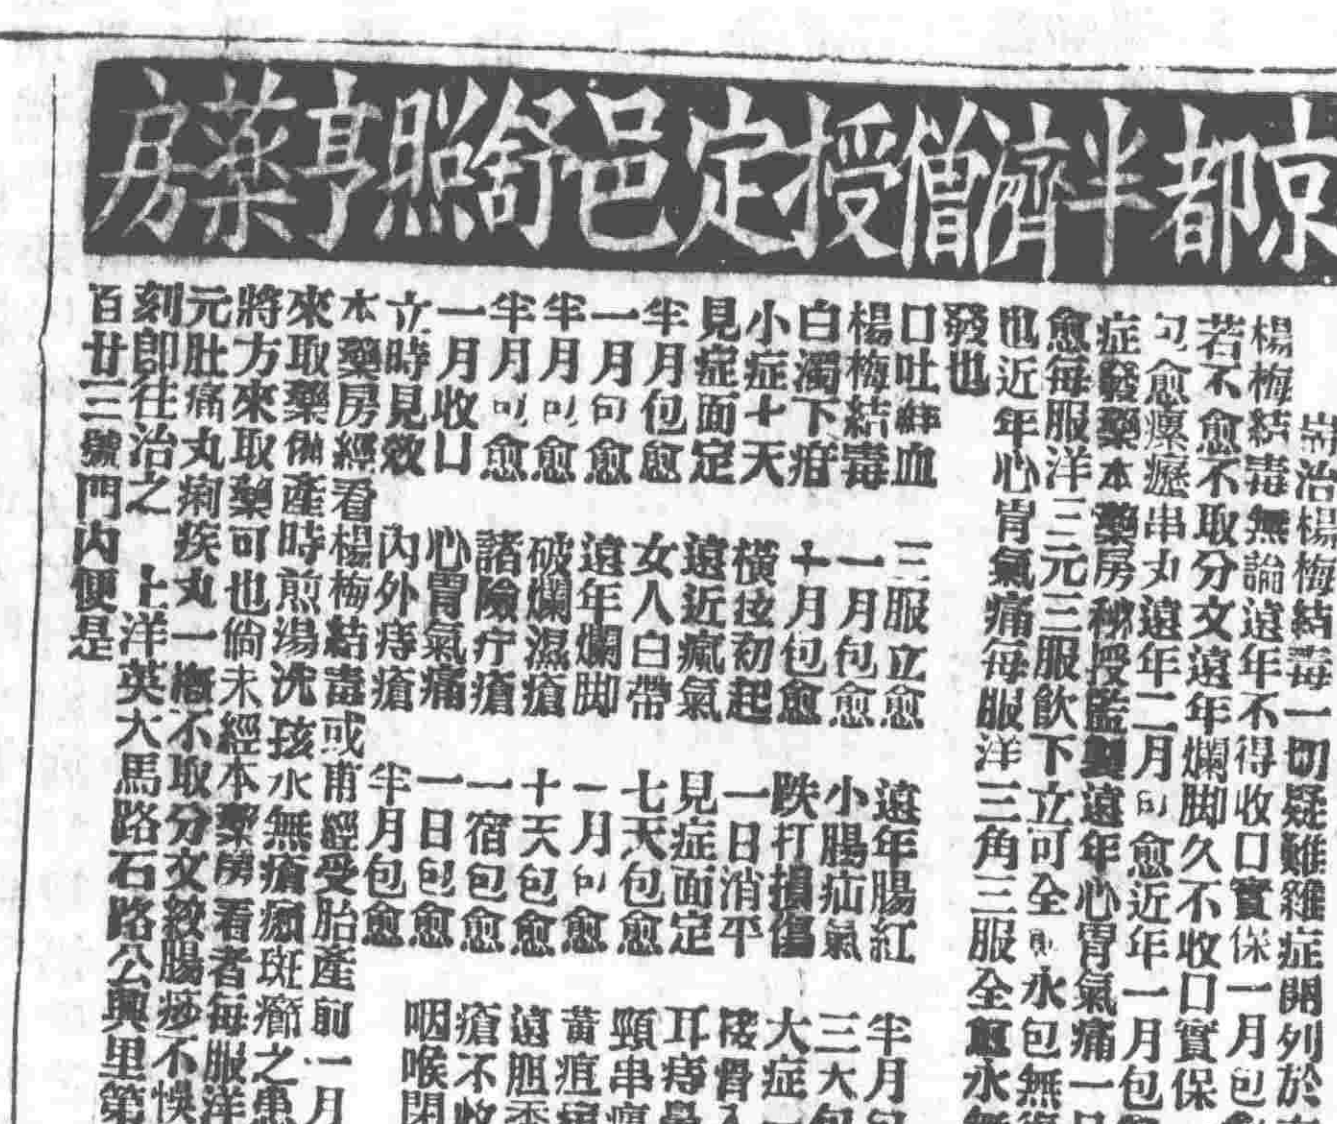 京都半濟僧授定邑舒照亨藥房
治楊梅結毒一切疑難雜症開列於
楊梅結毒無論遠年不得收口實保一月包
若不愈不取分文遠年爛脚久不收口實保
包愈瘰癧串丸遠年二月包愈近年一月包
症發藥本藥房秘授監製遠年心胃氣痛一
愈每服洋三元三服飲下立可全愈永包無
也近年心胃氣痛每服洋三角三服全愈永無
發也
口吐鮮血 三服立愈 遠年腸紅 半月
楊梅結毒 一月包愈 小腸疝氣 三天包
白濁下疳 十月包愈 跌打損傷 大症一
小症七天 橫痃初起 一日消平
見症面定 遠近瘋氣 見症面定 耳痔
半月包愈 女人白帶 七天包愈 頸串
一月包愈 遠年爛脚 一月包愈 黃疸
半月包愈 破爛濕瘡 十天包愈 遠
半月包愈 諸險疔瘡 一宿包愈 瘡不收
一月收口 心胃氣痛 一日包愈 咽喉閉
立時見效 內外痔瘡 半月包愈
本藥房經看楊梅結毒或甫經受胎產前一月
來取藥備產時煎湯洗孩水無瘡癩斑癤之患
將方來取藥可也倘未經本藥房看者每服洋
元肚痛丸痢疾丸一概不取分文絞腸痧不悞
刻即往治之 上洋英大馬路石路公興里第
百廿三號門內便是